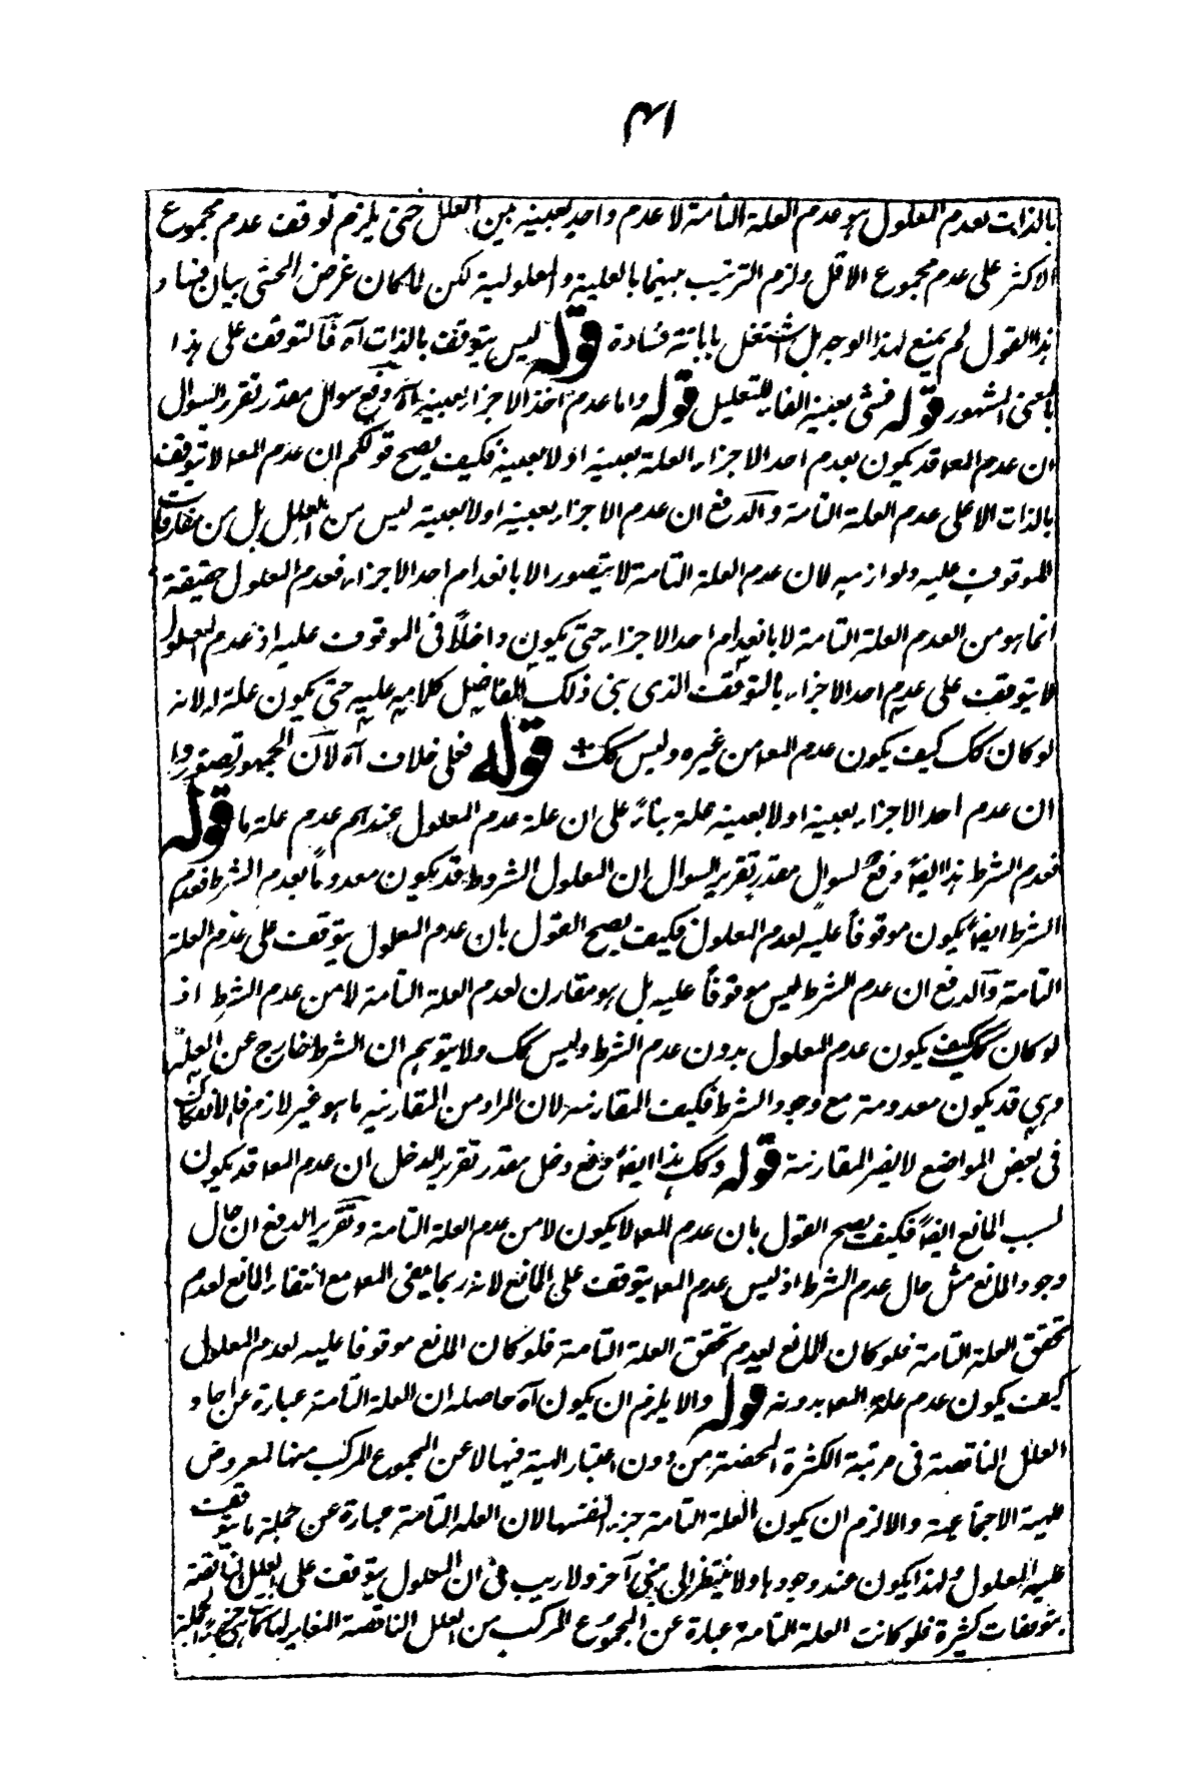 ۴۱
بالذات لعدم المعلول هو عدم العلة التامة لا عدم واحد بعينه من العلل حتى يلزم توقف عدم مجموع
الاكثر على عدم مجموع الاقل ولزم الترتيب بينهما بالعلية والمعلولية لكن لما كان غرض المحشى بيان فساد
هذا القول لم يمنع لهذا الوجه بل اشتغل بابانة فساده قوله ليس يتوقف بالذات آه فالتوقف على هذا
بالمعنى المشهور قوله فشئ بعينه الفاء للتعليل قوله واما عدم احد الاجزاء بعينه آه دفع سوال مقدر تقرير السوال
ان عدم المعا قد يكون بعدم احد الاجزاء العلة بعينه او لا بعينه فكيف يصح قولكم ان عدم المعا لا يتوقف
بالذات الا على عدم العلة التامة والدفع ان عدم الاجزاء بعينه او لا بعينه ليس من العلل بل من مقارنات
الموقوف عليه ولوازمه لان عدم العلة التامة لا يتصور الا بانعدام احد الاجزاء فعدم المعلول حقيقة
انما هو من العدم العلة التامة لا بانعدام احد الاجزاء حتى يكون داخلاً فى الموقوف عليه اذ عدم المعلول
لا يتوقف على عدم احد الاجزاء بالتوقف الذى بنى ذلك الفاضل كلامه عليه حتى يكون علة له لانه
لو كان كك كيف يكون عدم المعا من غيره وليس كك قوله فعلى خلاف آه لان الجمهور تصوروا
ان عدم احد الاجزاء بعينه او لا بعينه علة بناءً على ان علة عدم المعلول عندهم عدم علة ما قوله
فعدم الشرط هذا ايضاً دفع لسوال مقدر تقرير السوال ان المعلول المشروط قد يكون معدوماً بعدم الشرط فعدم
الشرط ايضاً يكون موقوفاً عليه لعدم المعلول فكيف يصح القول بان عدم المعلول يتوقف على عدم العلة
التامة والدفع ان عدم الشرط ليس موقوفاً عليه بل هو مقارن لعدم العلة التامة لا من عدم الشرط اذ
لو كان كك كيف يكون عدم المعلول بدون عدم الشرط وليس كك ولا يتوهم ان الشرط خارج عن العلة
وهى قد يكون معدومة مع وجود الشرط فكيف المقارنة لان المراد من المقارنة ما هو غير لازم فالانفكاك
فى بعض المواضع لا يضر المقارنة قوله وكك هذا ايضاً دفع دخل مقدر تقرير الدخل ان عدم المعا قد يكون
لسبب المانع ايضاً فكيف يصح القول بان عدم المعا لا يكون لا من عدم العلة التامة وتقرير الدفع ان حال
وجود المانع مثل حال عدم الشرط اذ ليس عدم المعا يتوقف على المانع لانه ربما ينفى المعا مع انتفاء المانع لعدم
تحقق العلة التامة فلو كان المانع لعدم تحقق العلة التامة فلو كان المانع موقوفا عليه لعدم المعلول
كيف يكون عدم علة المعا بدونه قوله والا يلزم ان يكون آه حاصله ان العلة التامة عبارة عن احاد
العلل الناقصة فى مرتبة الكثرة المحضة من دون اعتبار الهيئة فيها لا عن المجموع المركب منها المعروض
للهيئة الاجتماعية والا لزم ان يكون العلة التامة جزء لنفسها لان العلة التامة عبارة عن جملة ما يتوقف
عليه المعلول ولهذا يكون عند وجودها ولا ينتظر الى شئ آخر ولا ريب فى ان المعلول يتوقف على العلل الناقصة
بتوقفات كثيرة فلو كانت العلة التامة عبارة عن المجموع المركب من العلل الناقصة المغاير لها